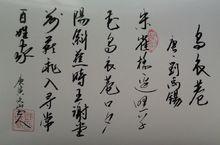 烏衣巷
唐 劉禹錫
朱雀橋邊野草
花烏衣巷口夕
陽斜舊時王謝堂
前燕飛入尋常
百姓家